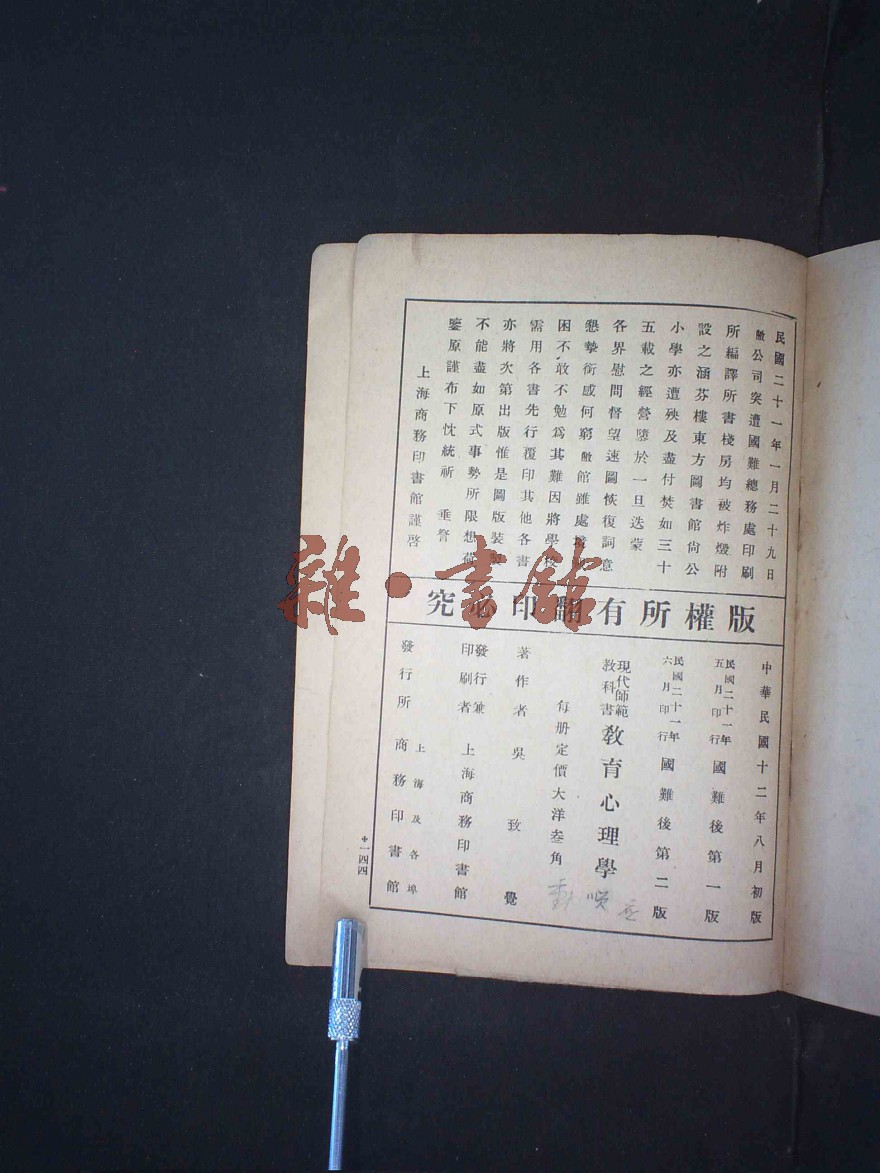 民國二十一年一月二十九日
敝公司突遭國難總務處印刷
所編譯所書棧房均被炸燬附
設之涵芬樓東方圖書館尙公
小學亦遭殃及盡付焚如三十
五載之經營墮於一旦迭蒙
各界慰問督望速圖恢復詞意
懇摯銜感何窮敝館雖處
困不敢不勉爲其難因將學校
需用各書先行覆印其他各書
亦將次第出版惟是圖版裝
不能盡如原式事勢所限想荷
鑒原謹布下忱統祈 垂詧
上海商務印書館謹啓
版權所有翻印必究
中華民國十二年八月初版
民國二十一年五月印行 國難後第一版
民國二十一年六月印行 國難後第二版
現代師範教科書 教育心理學
每册定價大洋叁角
著作者 吳致覺
發行兼印刷者 上海商務印書館
發行所 上海及各埠 商務印書館
一四四
雜·書館